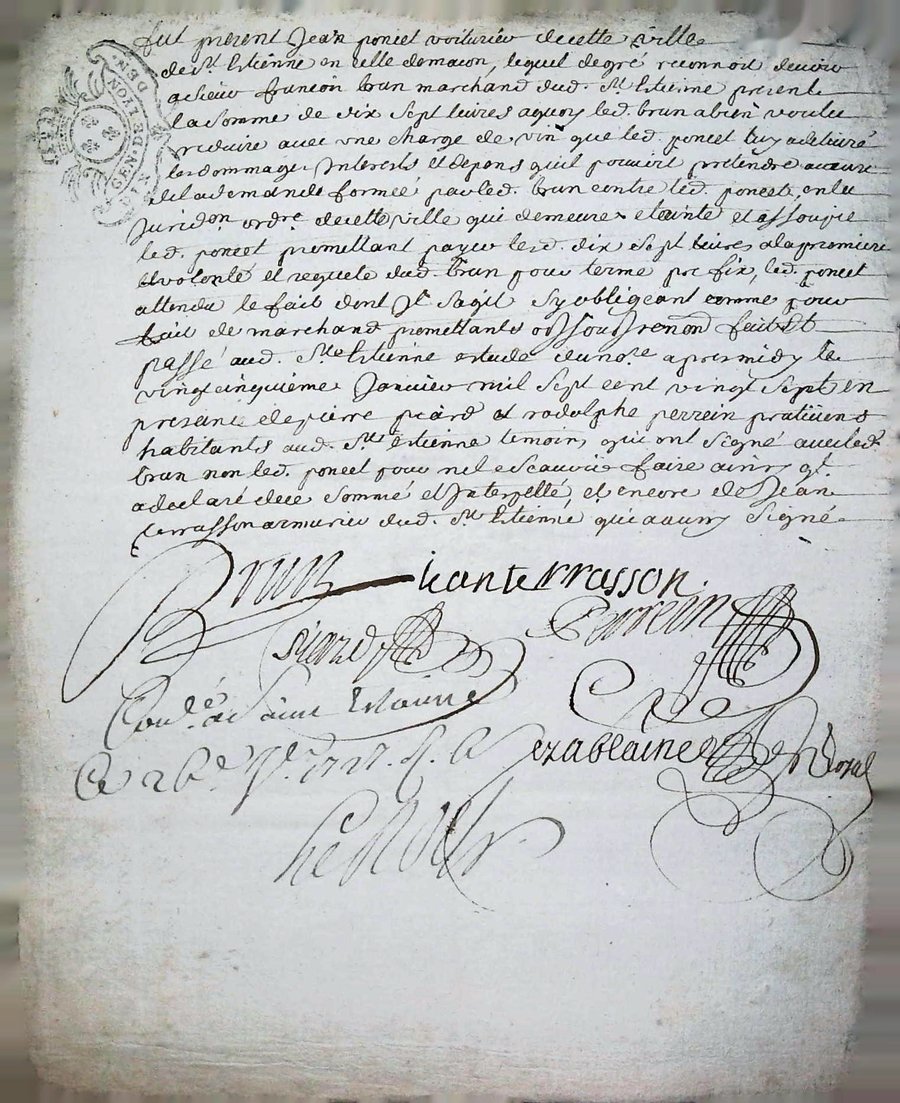 fut present Jean poncet voiturier decette ville
de St. Etienne en celle demacon, lequel degré reconnoit devoir
asieur françois brun marchand dud. St. Etienne present
la somme de dix sept livres aquoy led. brun abien voulu
reduire avec une charge de vin que led. poncet luy adelivré
les dommages Interests et depens quil pouvoit pretendre
dela demande formeé par led. brun contre led. poncet, en la
Juridon. ordre. decette ville qui demeure eteinte et assoupie
led. poncet promettant payer lesd. dix sept livres ala premiere
volonté et requete dud. brun pour terme prefix, led. poncet
attendu le fait dont Jl Sagit Syobligeant comme pour
fait de marchand promettants obl soub renond fait et
passé aud. St. Etienne estude dunore. apresmidy le
vingtcinquieme Janvier mil sept cent vingt Sept en
presance depierre picard et rodolphe perrein praticiens
habitants aud. St. Etienne temoins qui ont Signé avecled.
brun non led. poncet pour nele scavoir faire ainsy qt.
adeclaré dece Sommé et Interpellé, et encore de Jean
terrasson armurier dud. St. Etienne qui aaussy Signé
Brun Jean terrasson.
picard Perrein
Coulé. a Saint Etienne
Ce 26e Jr. 1727.
nre Royal
GEN. DE LYON.